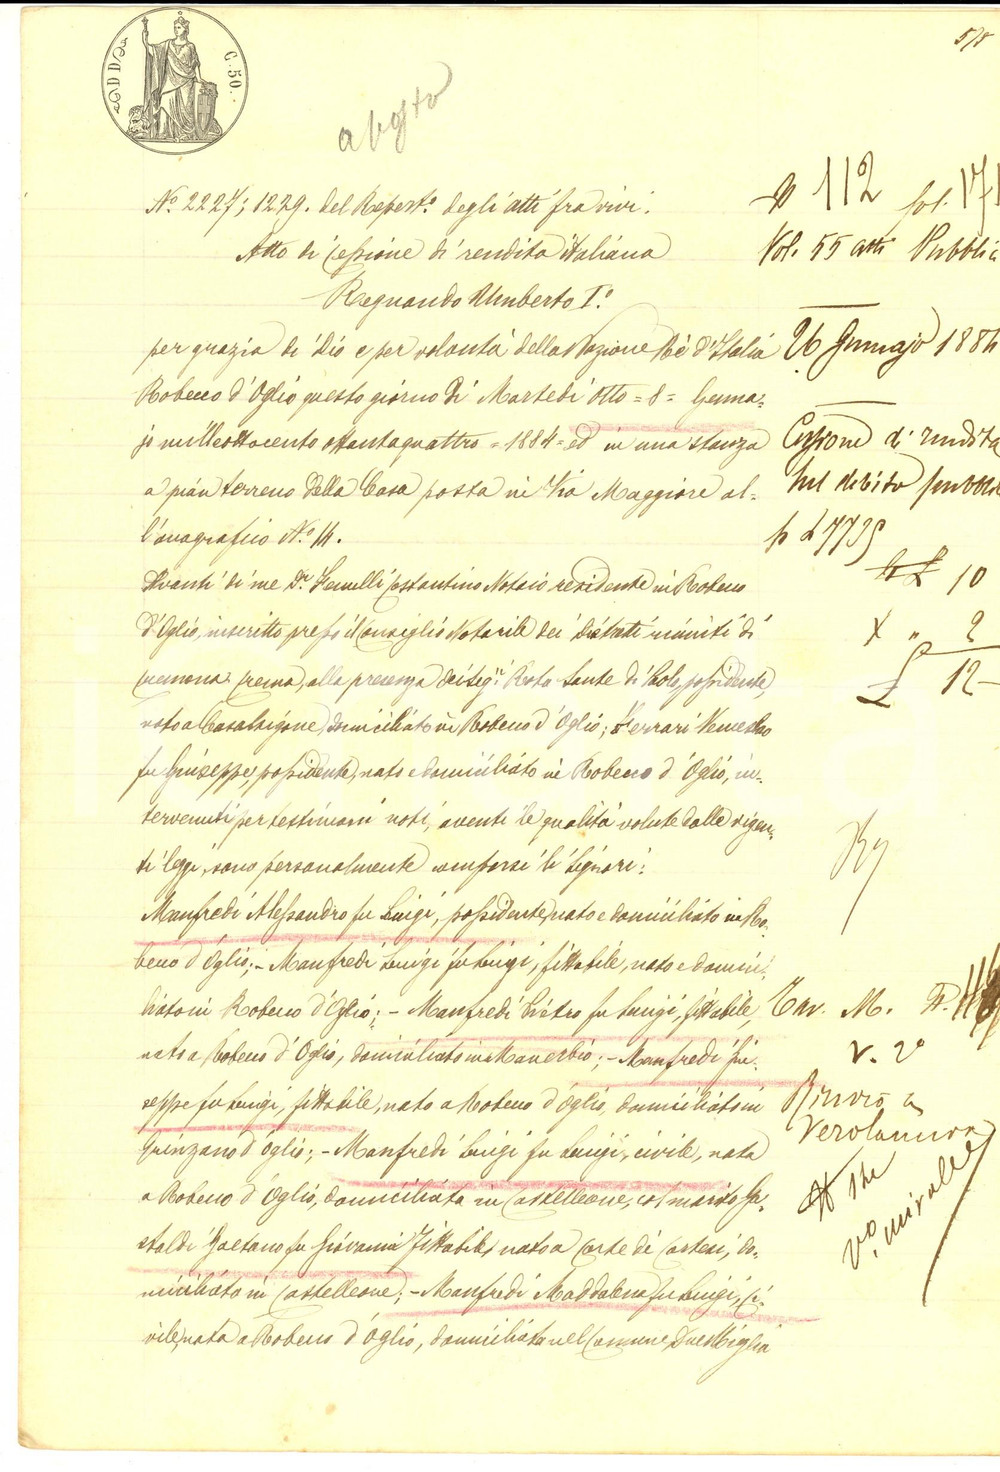 C. 50.
578
N.º 2227; 1229. del Repert.º degli atti fra vivi.
Atto di cessione di rendita italiana
Regnando Umberto Iº.
per grazia di Dio e per volontà della Nazione Rè d'Italia
Robecco d'Oglio questo giorno di Martedì otto = 8 = Genna-
jo milleottocento ottantaquattro = 1884 = ed in una stanza
a pian terreno della Casa posta in Via Maggiore al-
l'anagrafico N.º 14.
Avanti di me Dr. Costantino Notaio residente in Robecco
d'Oglio, inscritto presso il Consiglio Notarile dei distretti riuniti di
Cremona e Crema, alla presenza dei Sig.ri Rota Sante di Paolo, possidente,
nato a Casalsigone, domiciliato in Robecco d'Oglio; Ferrari Venceslao
fu Giuseppe, possidente, nato e domiciliato in Robecco d'Oglio, in-
tervenuti per testimoni noti, aventi le qualità volute dalle vigen-
ti leggi, sono personalmente comparsi li Signori:
Manfredi Alessandro fu Luigi, possidente, nato e domiciliato in Ro-
becco d'Oglio; - Manfredi Luigi fu Luigi, fittabile, nato e domici-
liato in Robecco d'Oglio; - Manfredi Pietro fu Luigi, fittabile,
nato a Robecco d'Oglio, domiciliato in Manerbio; - Manfredi Giu-
seppe fu Luigi, fittabile, nato a Robecco d'Oglio, domiciliato in
Quinzano d'Oglio; - Manfredi Luigi fu Luigi, civile, nata
a Robecco d'Oglio, domiciliata in Castelleone, col marito Ga-
staldi Gaetano fu Giovanni fittabile, nato a Corte de Cortesi, do-
miciliato in Castelleone; - Manfredi Maddalena fu Luigi, ci-
vile, nata a Robecco d'Oglio, domiciliata nel Comune Due Miglia
N 112 fol. 171
Vol. 55 atti Pubblici
26 Gennajo 1884
Cessione di rendita
sul debito pubblico
p £ 7735
£ 10
X " 2
£ 12-
Tav. M. N.
V. 2º
Rinvio a
Verolanuova